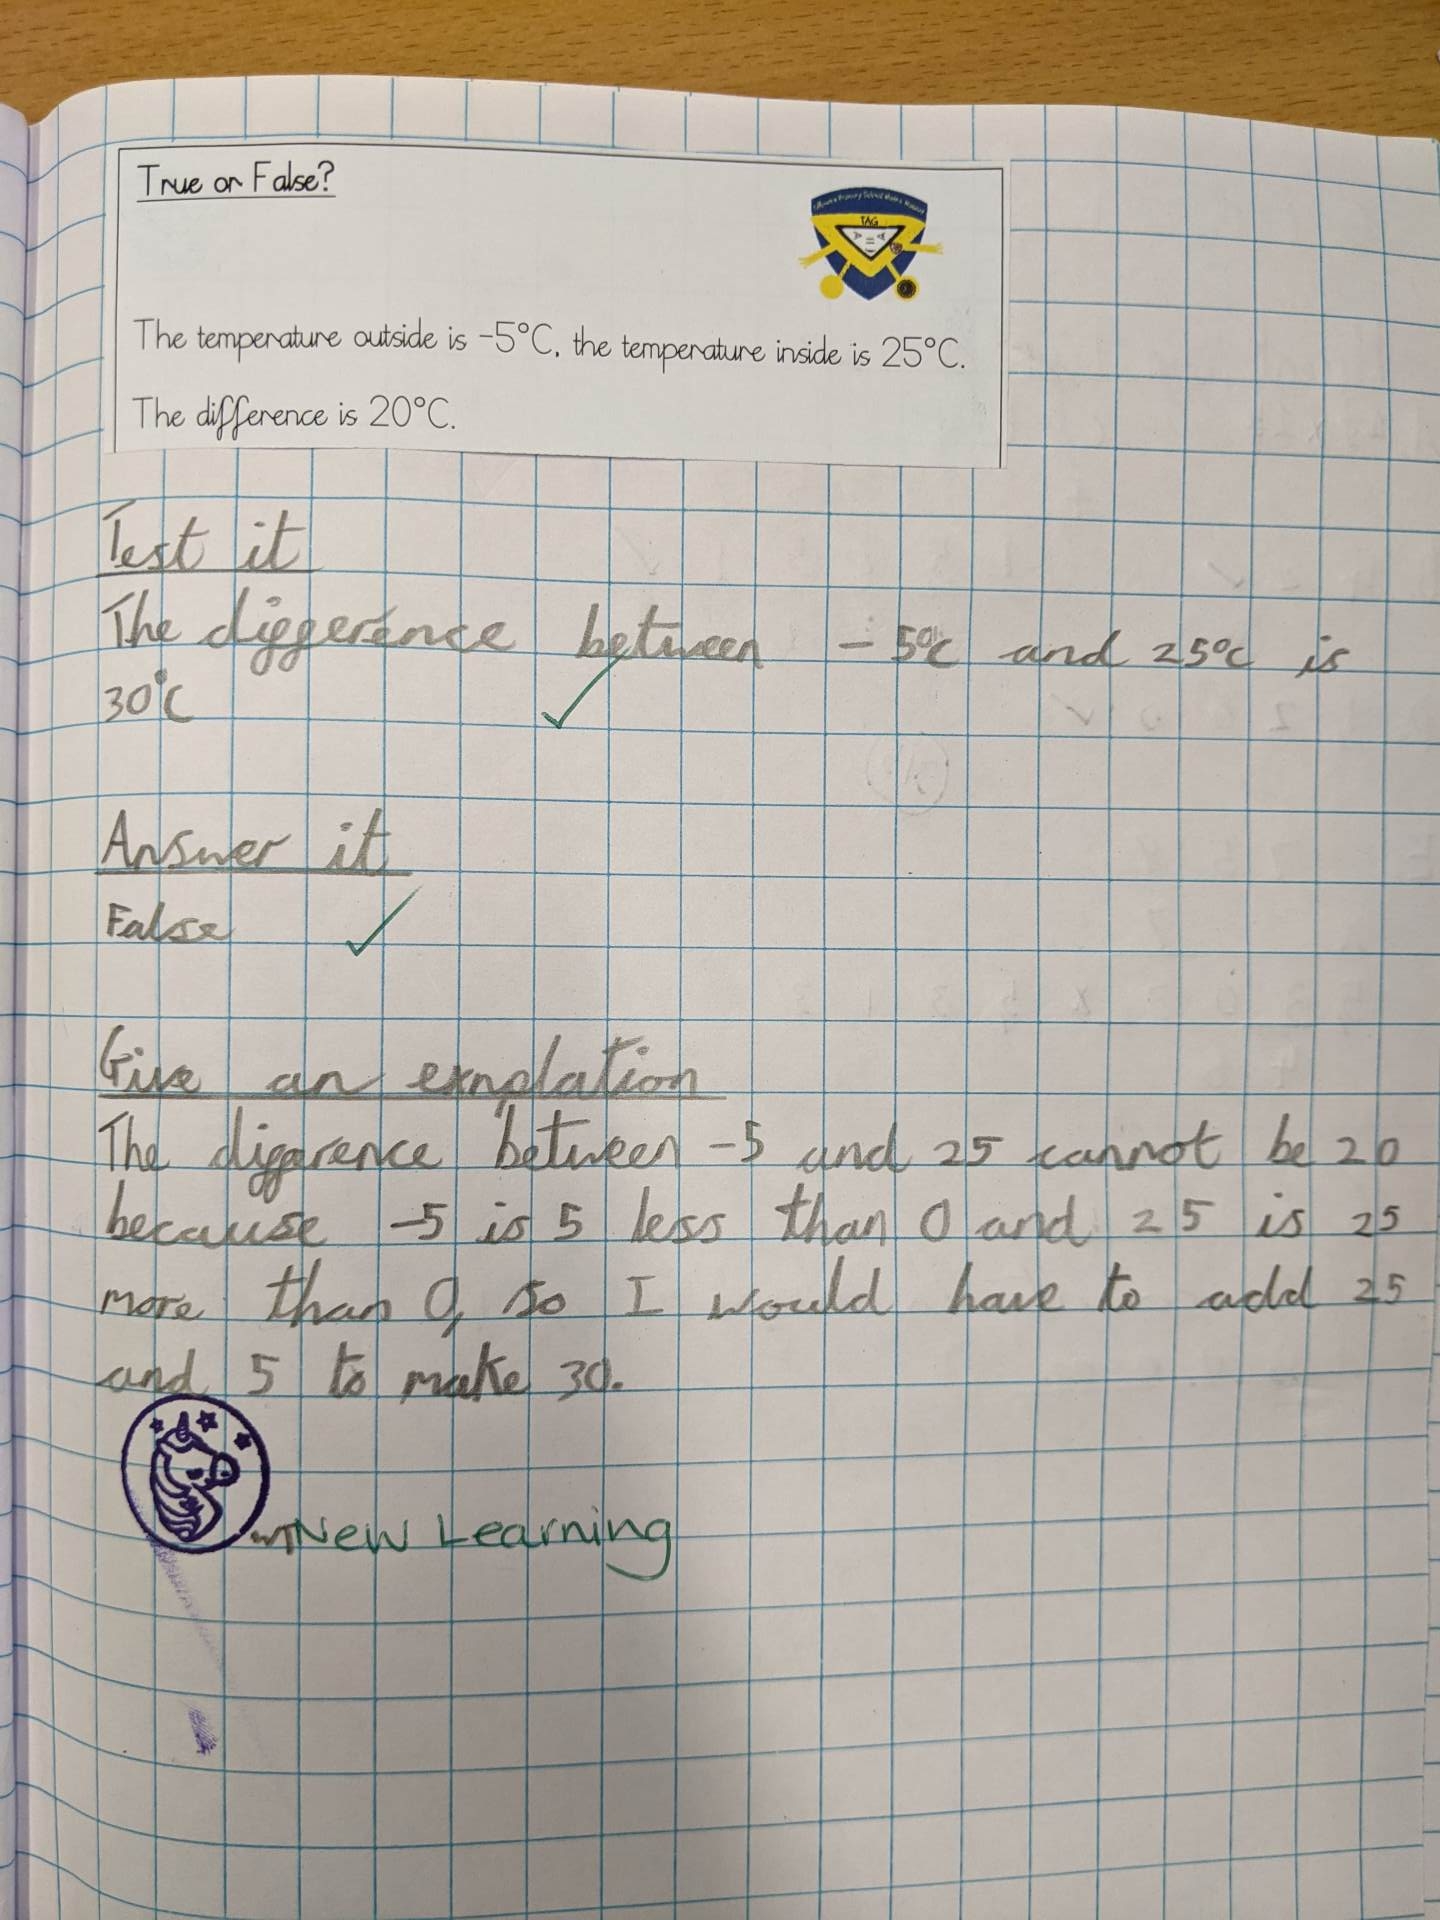 True or False?
TAG
The temperature outside is -5°C, the temperature inside is 25°C.
The difference is 20°C.
Test it
The diggerence between -5°c and 25°c is
30°C
Answer it
False
Give an exnplation
The diggarence between -5 and 25 cannot be 20
because -5 is 5 less than 0 and 25 is 25
more than 0, so I would have to add 25
and 5 to make 30.
New Learning